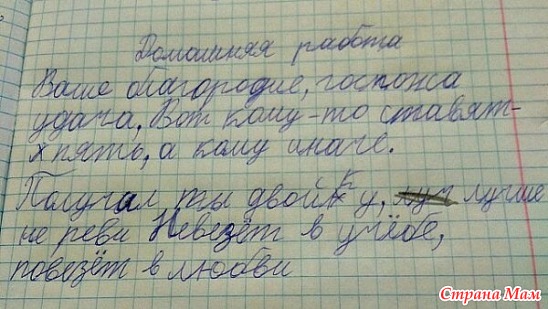 Домашняя работа
Ваше благородие, госпожа
удача, Вот кому-то ставят-
х пять, а кому иначе.
Палучал ты двойку, лучше
не реви Невезёт в учёбе,
повезёт в любви
Страна Мам